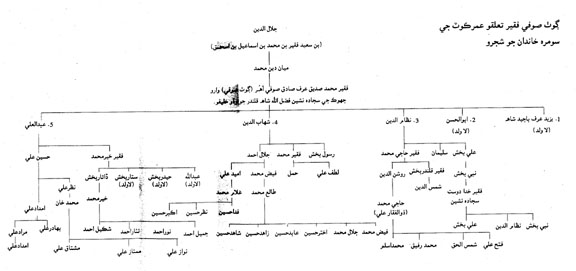 ڳوٺ صوفي فقير تعلقو عمرڪوٽ جي
سومره خاندان جو شجرو
جلال الدين
(بن سعيد فقير بن محمد بن اسماعيل بن اسحق)
ميان دين محمد
فقير محمد صديق عرف صادق صوفي آهر (ڳوٺ صوفي) وارو
جهوڪ جي سجاده نشين فضل الله شاهه قلندر جو
1- يزيد عرف بايزيد شاهه
(لا ولد)
2- ابوالحسن
(لا ولد)
3- نظام الدين
4- شهاب الدين
5- عبدالعلي
علي بخش
سليمان
فقير حاجي محمد
رسول بخش
فقير محمد
جلال احمد
اميد علي
فقير خيرمحمد
حسين علي
نبي بخش
فقير قلندربخش
روشن الدين
لطف علي
حمل
فيض محمد
غلام محمد
عبدالله
(لاولد)
حيدربخش
(لاولد)
ستاربخش
(لاولد)
ڏاتاربخش
نظرعلي
فقير خدا دوست
سجاده نشين
شمس الدين
حاجي محمد
(ذوالفقار علي)
طالع محمد
فداحسين
نظرحسين
اڪبرحسين
خيرمحمد
محمد خان
امدادعلي
علي بخش
نبي بخش
نظام الدين
فتح علي
شمس الحق
محمد رفيق
محمداسلم
فيض محمد
جلال محمد
اخترحسين
عابدحسين
زاهدحسين
شاهدحسين
جميل احمد
نوراحمد
نثاراحمد
شڪيل احمد
بهادرعلي
مرادعلي
امدادعلي
نواز علي
ممتاز علي
مشتاق علي